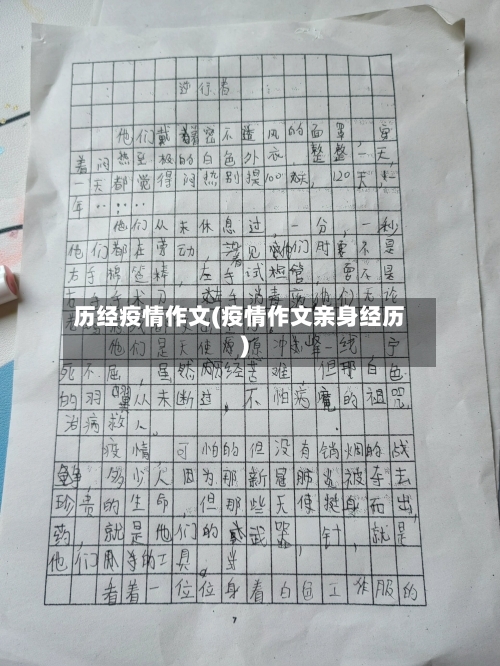 逆行者
他们戴着密不透风的面罩,穿
着闷热至极的白色外衣,整整一天,
一天都觉得闷热别提100天,120天,一
年……
他们从未休息过,一分,一秒
他们都在劳动,看见他们时要不是
右手棉签,左手试管,要不是
手术刀,手消毒,他们无论
历经疫情作文(疫情作文亲身经历
)
他们是天使,冲一线,宁
死不屈,虽然历经苦难,但那白色
的羽翼从未断过,不怕病魔的诅咒,
治病救人。
疫情可怕的但没有销烟的战
多少人因为那新冠肺炎被夺去
珍贵的生命,但那些天使挺身而出,
药,就是他们的武器,针,就是
他们的工具,
看着一位位身着白色工作服的
7